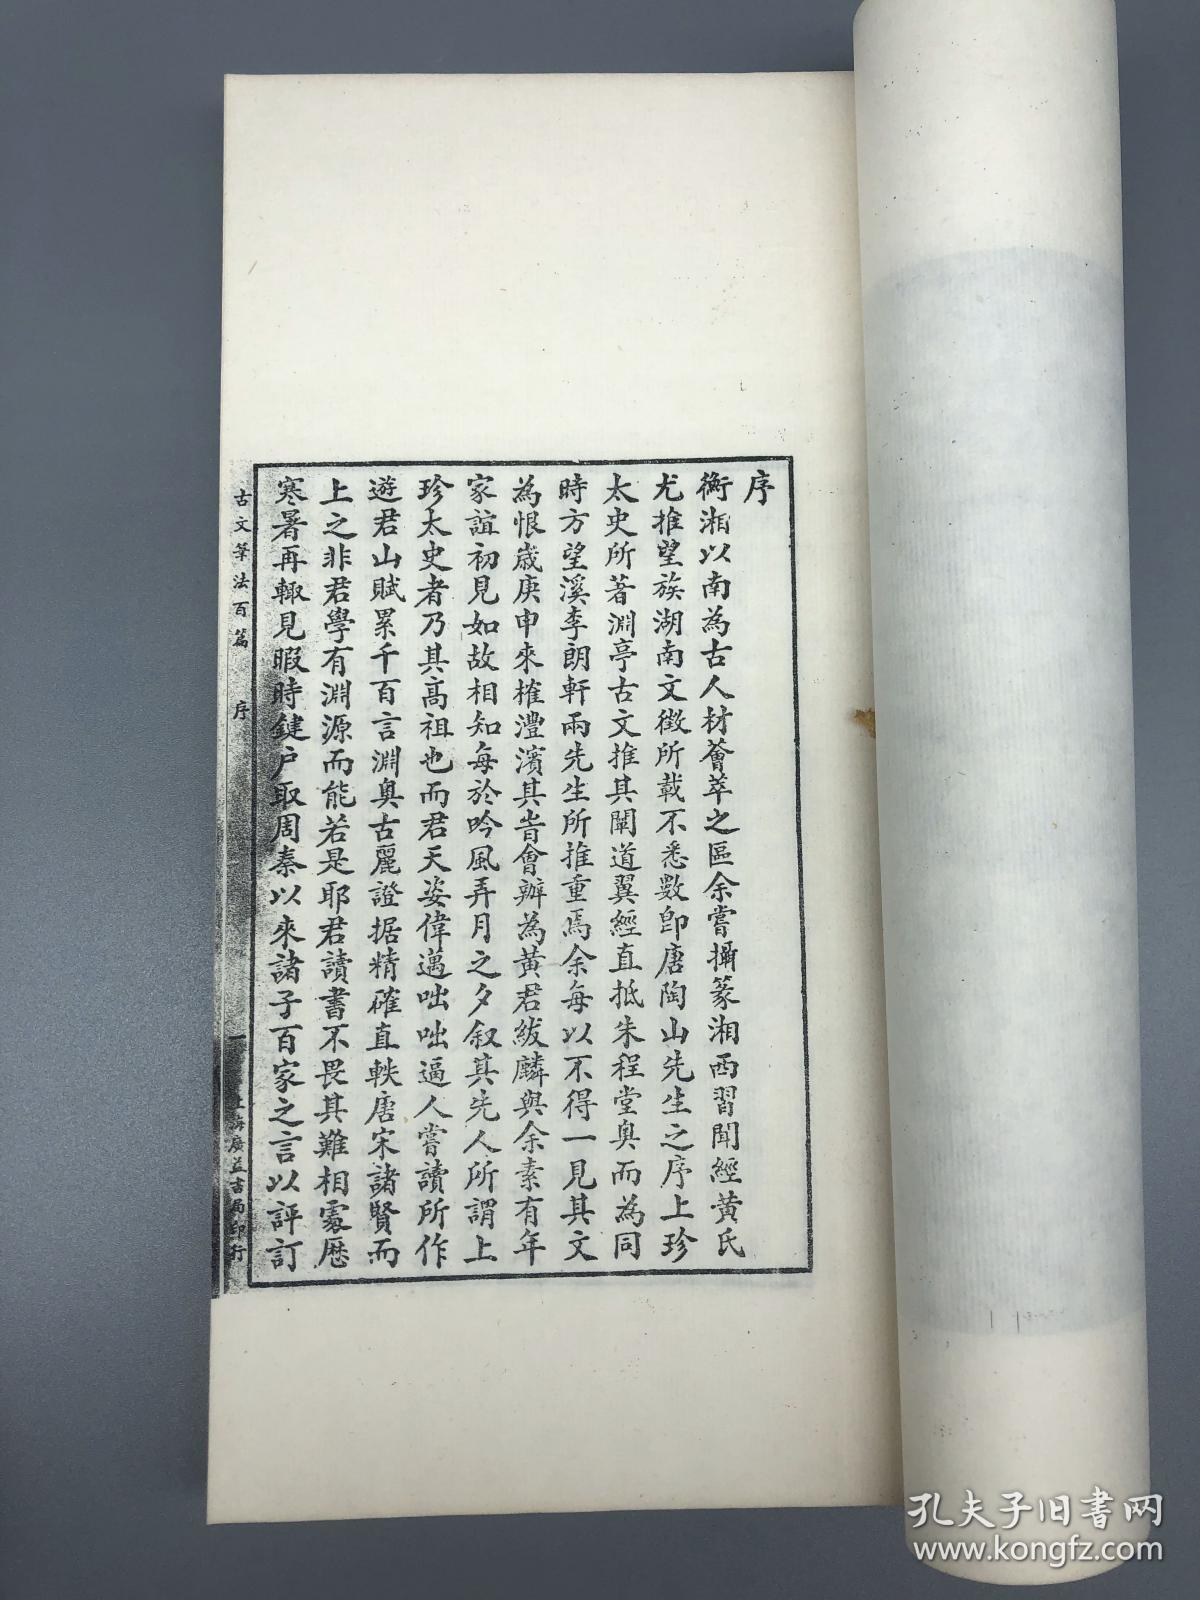 序
衡湘以南為古人材薈萃之區余嘗攝篆湘西習聞經黃氏
尤推望族湖南文徵所載不悉數即唐陶山先生之序上珍
太史所著淵亭古文推其闡道翼經直抵朱程堂奧而為同
時方望溪李朗軒兩先生所推重焉余每以不得一見其文
為恨歲庚申來榷澧濱其時會辦為黃君紱麟與余素有年
家誼初見如故相知每於吟風弄月之夕叙其先人所謂上
珍太史者乃其高祖也而君天姿偉邁咄咄逼人嘗讀所作
遊君山賦累千百言淵奧古麗證据精確直軼唐宋諸賢而
上之非君學有淵源而能若是耶君讀書不畏其難相處歷
寒暑再輒見暇時鍵户取周秦以來諸子百家之言以評訂
古文筆法百篇 序 一 上海廣益書局印行
孔夫子旧书网
www.kongfz.com